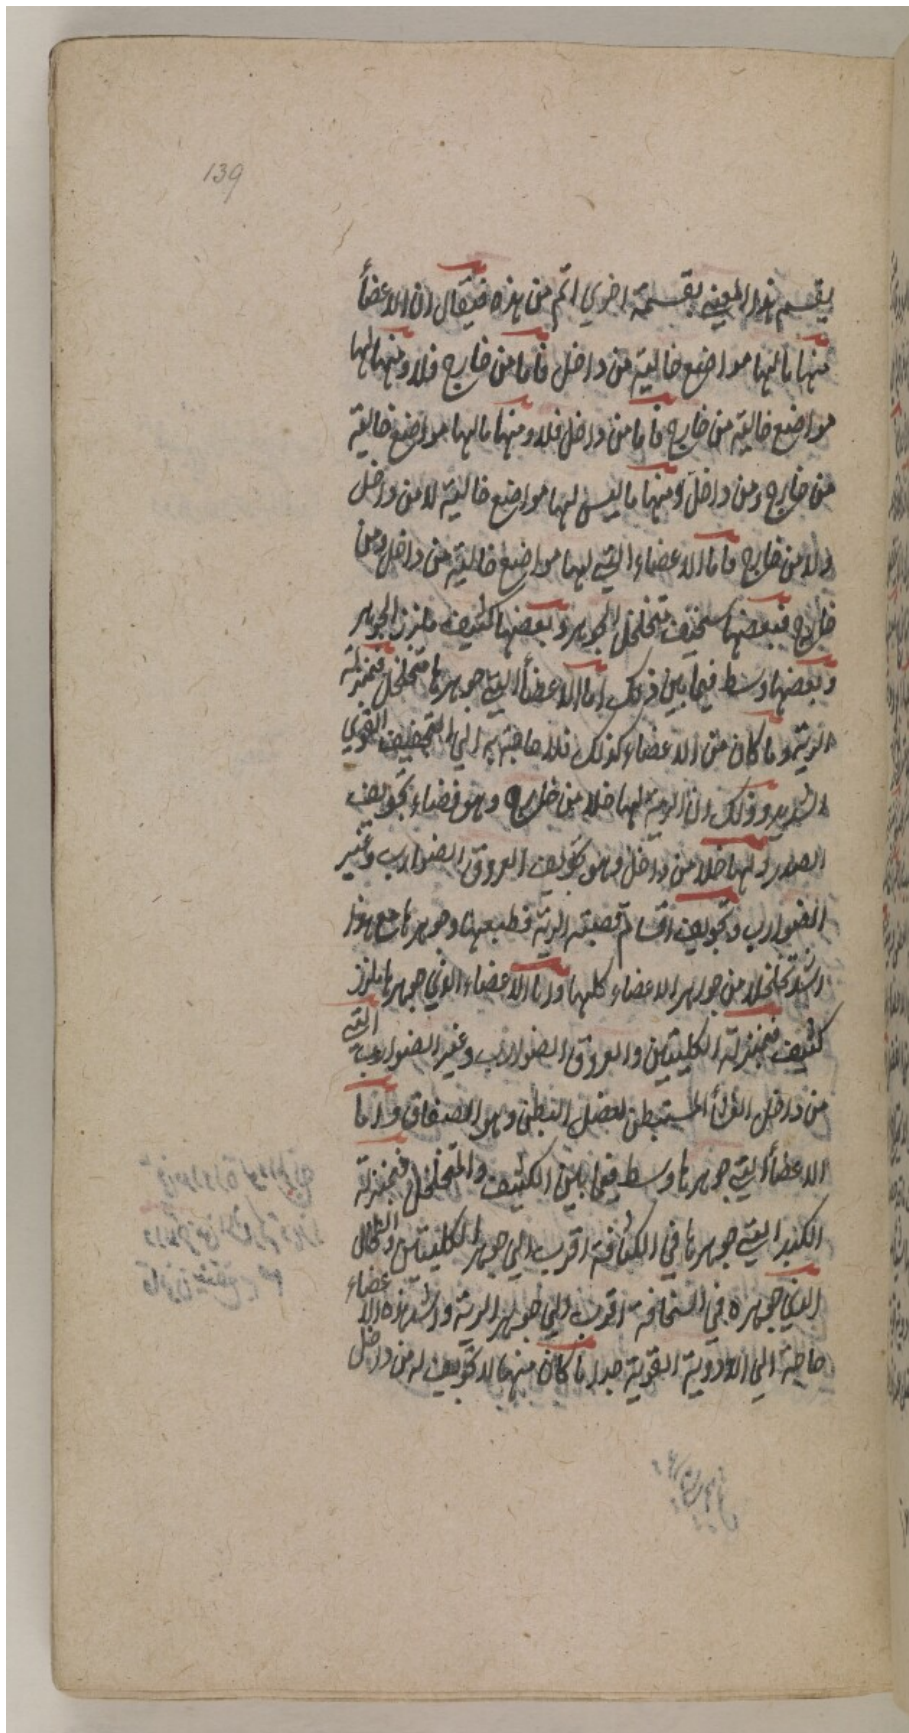 139
يقسم هذا المعنى بقسمة اخرى اتم من هذه فيقال ان الاعضأ
منها ما لها مواضع خالية من داخل فاما من خارج فلا ومنها لها
مواضع خالية من خارج فاما من داخل فلا ومنها ما لها مواضع خالية
من خارج ومن داخل ومنها ما ليس لها مواضع خالية لا من داخل
ولا من خارج فاما الاعضاء التي لها مواضع خالية من داخل ومن
خارج فبعضها سخيف متخلخل الجوهر وبعضها كثيف ملزز الجوهر
وبعضها وسط فيما بين ذلك اما الاعضأ التي جوهرها متخلخل فبمنزلة
الرية وما كان من الاعضاء كذلك فلا حاجة به الى التجفيف القوي
الشديد وذلك ان الرية لها خلا من خارج وهو فضاء تجويف
الصدر ولها خلا من داخل وهو تجويف العروق الضوارب وغير
الضوارب وتجويف اقسام قصبة الرية فطبعها وجوهرها مع هذا
اشد تخلخلا من جواهر الاعضاء كلها واما الاعضاء الذي جوهرها ملزز
كثيف فبمنزلة الكليتين والعروق الضوارب وغير الضوارب التي
من داخل الغشأ المستبطن لعضل البطن وهو الصفاق واما
الاعضأ التي جوهرها وسط فيما بين الكثيف والمتخلخل فبمنزلة
الكبد التي جوهرها في الكثافة اقرب الي جوهر الكليتين والطحال
الذي جوهره في السخافة اقرب الي جوهر الرية واشد هذه الاعضاء
حاجة الي الادوية القوية جدا ما كان منها لا تجويف له من داخل